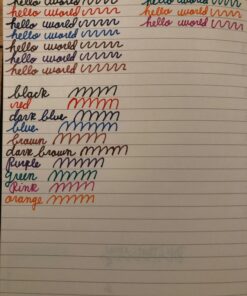 hello world
hello world
hello world
hello world
hello world
hello world
hello world
hello world
hello world
black
red
dark blue
blue
brown
dark brown
purple
green
pink
orange